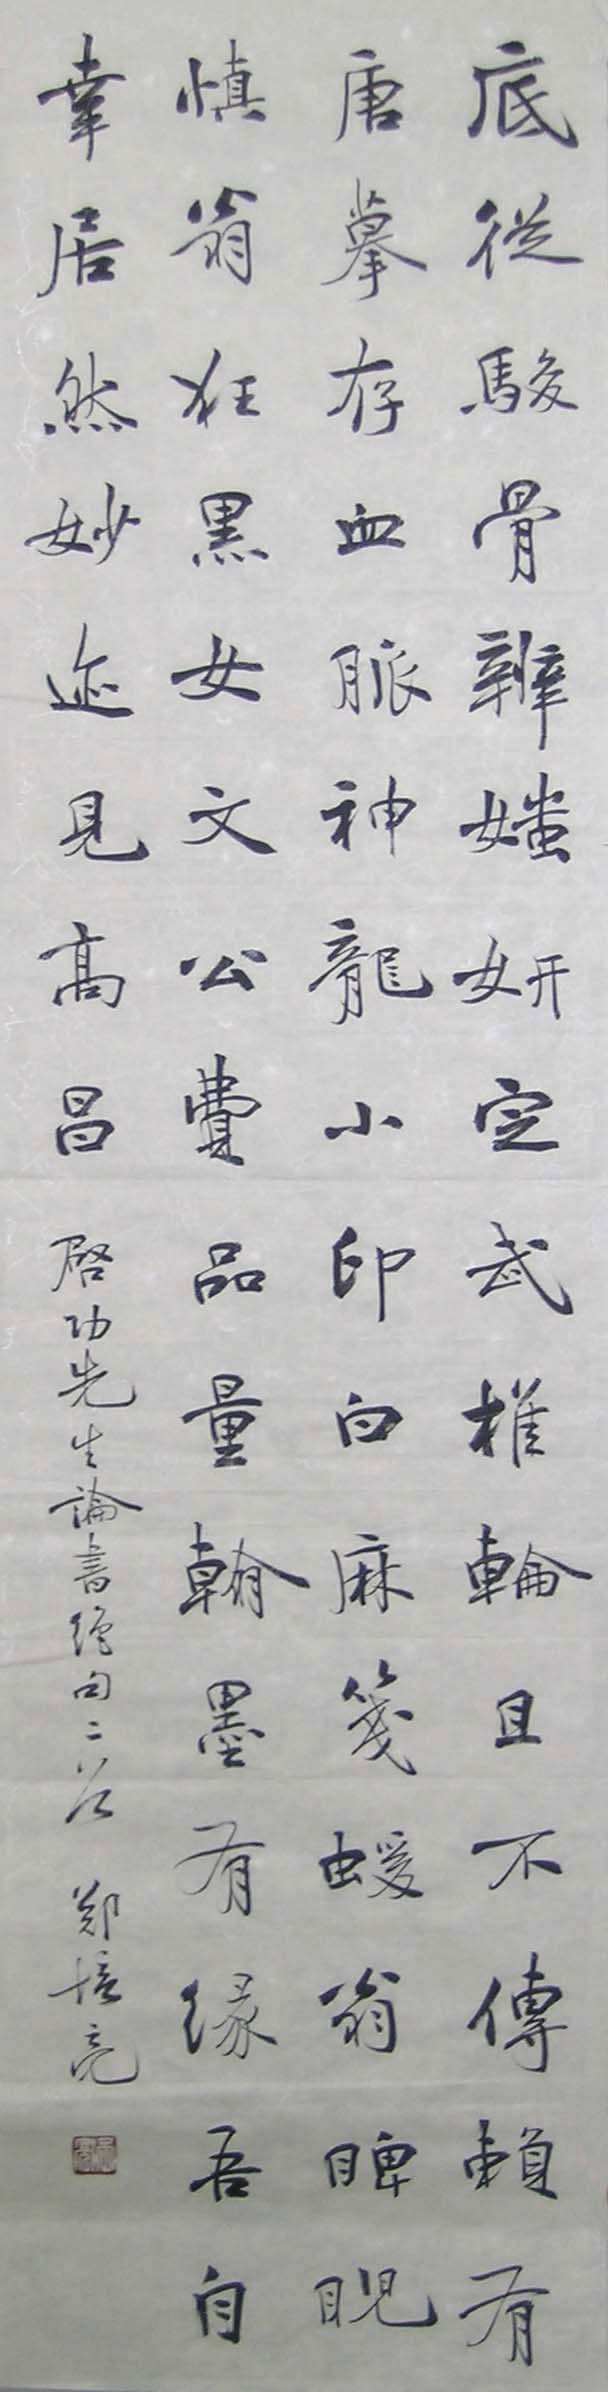 底從駿骨辨媸妍定武椎輪且不傳賴有
唐摹存血脈神龍小印白麻箋蝯翁睥睨
慎翁狂黑女文公費品量翰墨有緣吾自
幸居然妙迹見高昌
啓功先生論書絕句二首 鄭培亮